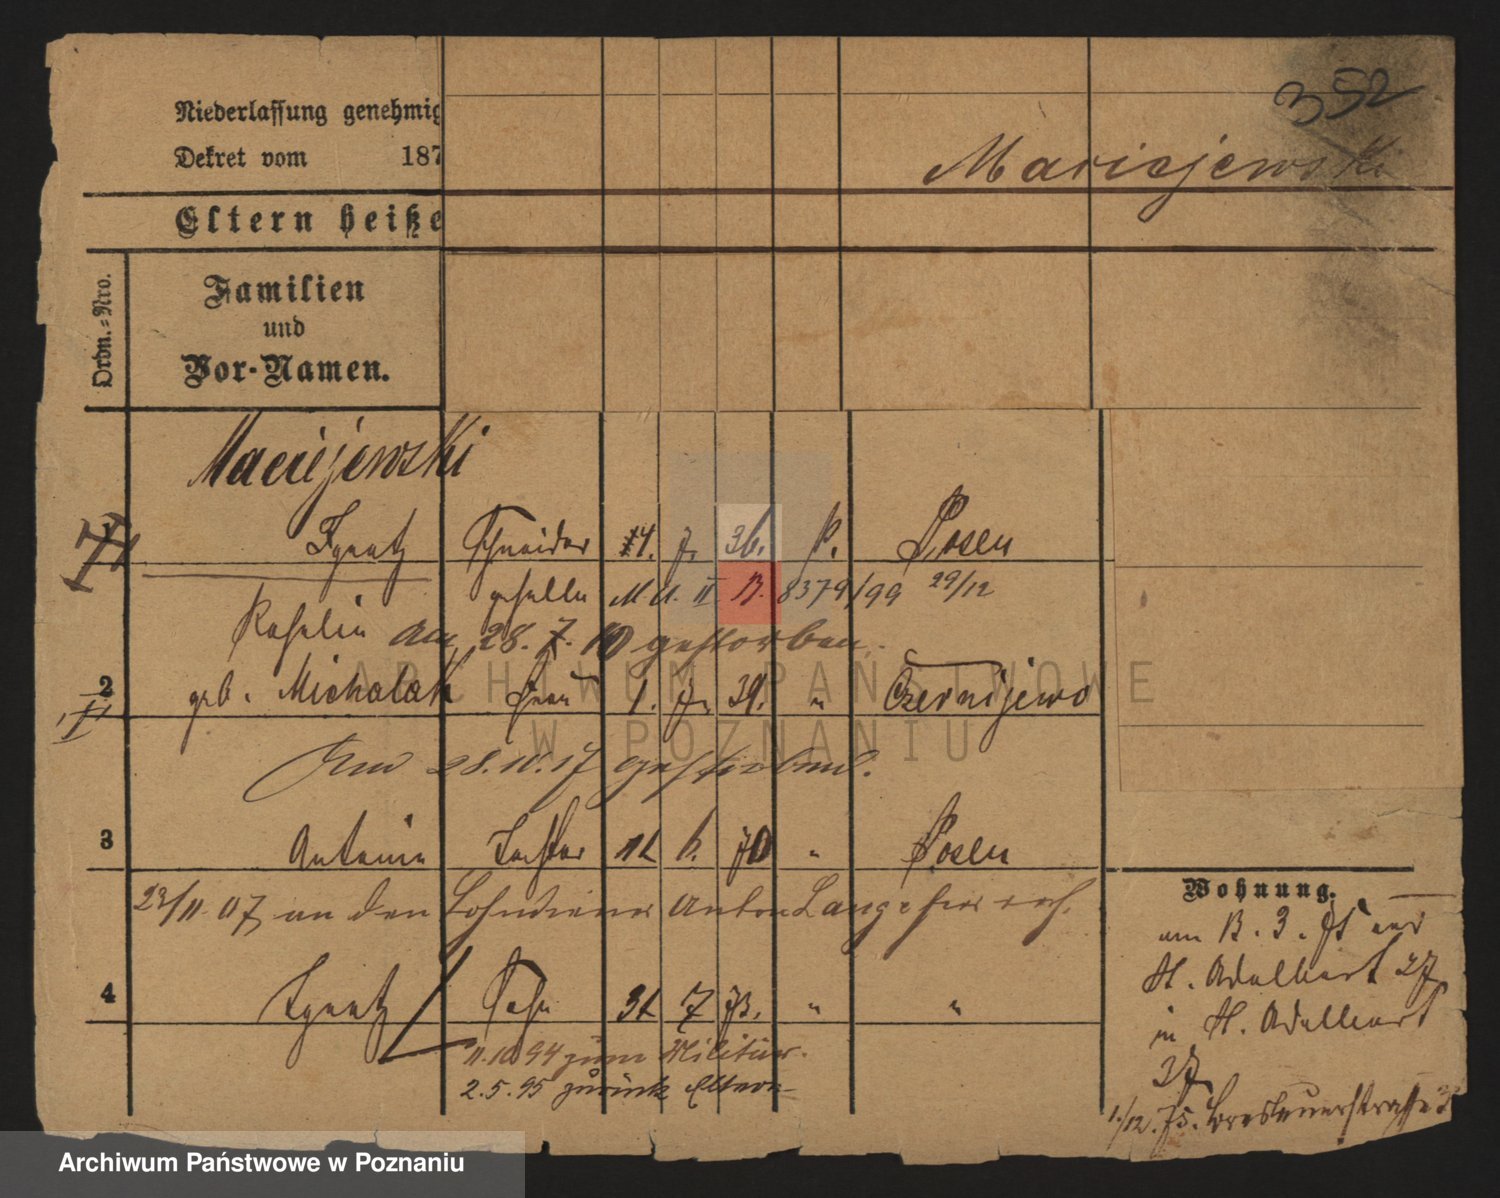 352
Niederlassung genehmig
Dekret vom 187
Maciejewski
Eltern heiße
Ordn.=Nro.
Familien
und
Vor-Namen.
Maciejewski
Ignatz Schneider 14. 7. 36. k. Posen
geselle M U. II B. 8379/99 29/12
Rosalie am 28. 7. 10 gestorben.
2 geb. Michalak Frau 1. 7. 39. " Czernijewo
ARCHIWUM PAŃSTWOWE
W POZNANIU
Am 28.10.17 gestorben.
3 Antonie Tochter 11 6. 70 " Posen
23/11. 07 an den Lohndiener Anton Lange hier verh.
4 Ignatz Sohn 31 7 73. " "
11.10.94 zum Militär.
2.5.95 zurück Eltern
Wohnung.
am 13. 3. 75 von
St. Adalbert 27
in St. Adalbert
37
1./12. 75. Breslauerstrasse
Archiwum Państwowe w Poznaniu